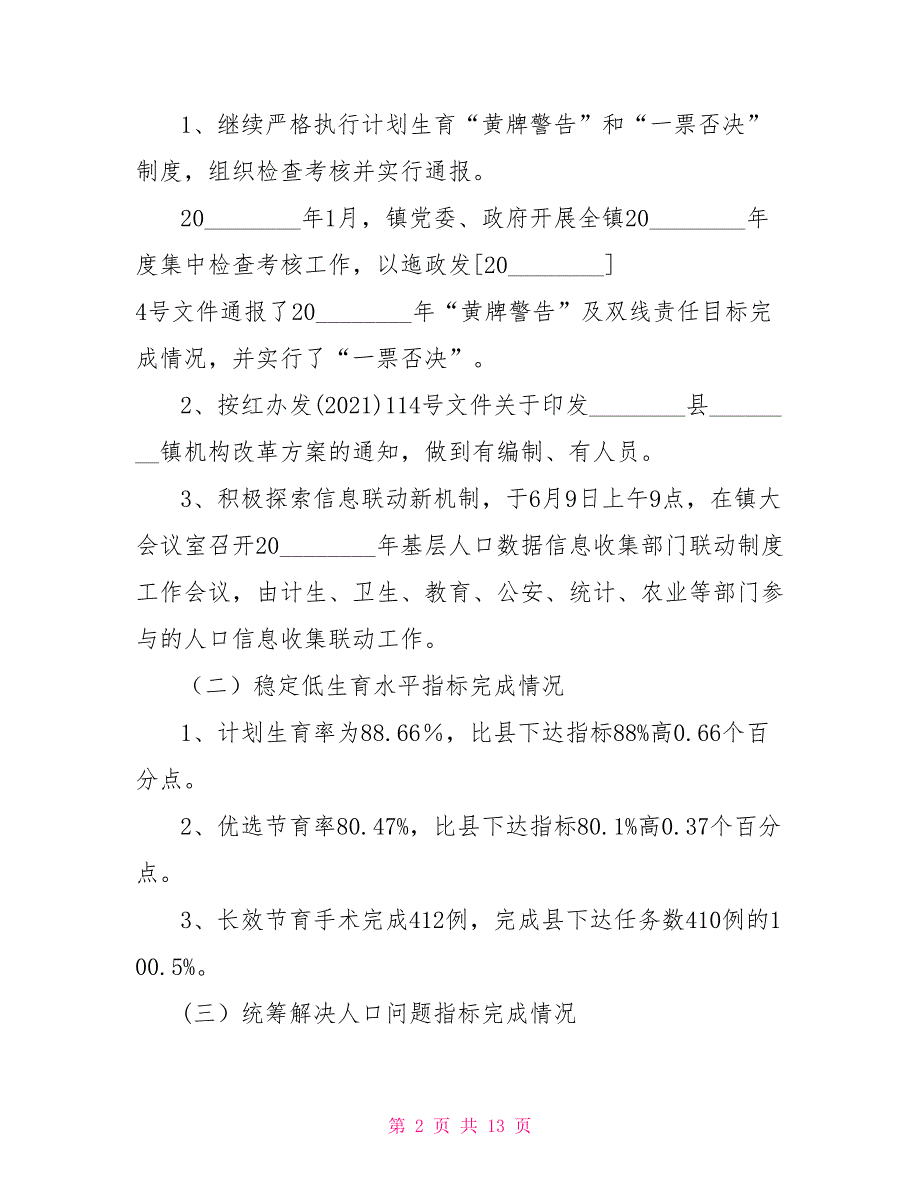 1、继续严格执行计划生育“黄牌警告”和“一票否决”
制度，组织检查考核并实行通报。
20________年1月，镇党委、政府开展全镇20________年
度集中检查考核工作，以迤政发[20________]
4号文件通报了20________年“黄牌警告”及双线责任目标完
成情况，并实行了“一票否决”。
2、按红办发(2021)114号文件关于印发________县______
__镇机构改革方案的通知，做到有编制、有人员。
3、积极探索信息联动新机制，于6月9日上午9点，在镇大
会议室召开20________年基层人口数据信息收集部门联动制度
工作会议，由计生、卫生、教育、公安、统计、农业等部门参
与的人口信息收集联动工作。
（二）稳定低生育水平指标完成情况
1、计划生育率为88.66％，比县下达指标88%高0.66个百
分点。
2、优选节育率80.47%，比县下达指标80.1%高0.37个百分
点。
3、长效节育手术完成412例，完成县下达任务数410例的1
00.5%。
(三）统筹解决人口问题指标完成情况
第 2 页 共 13 页